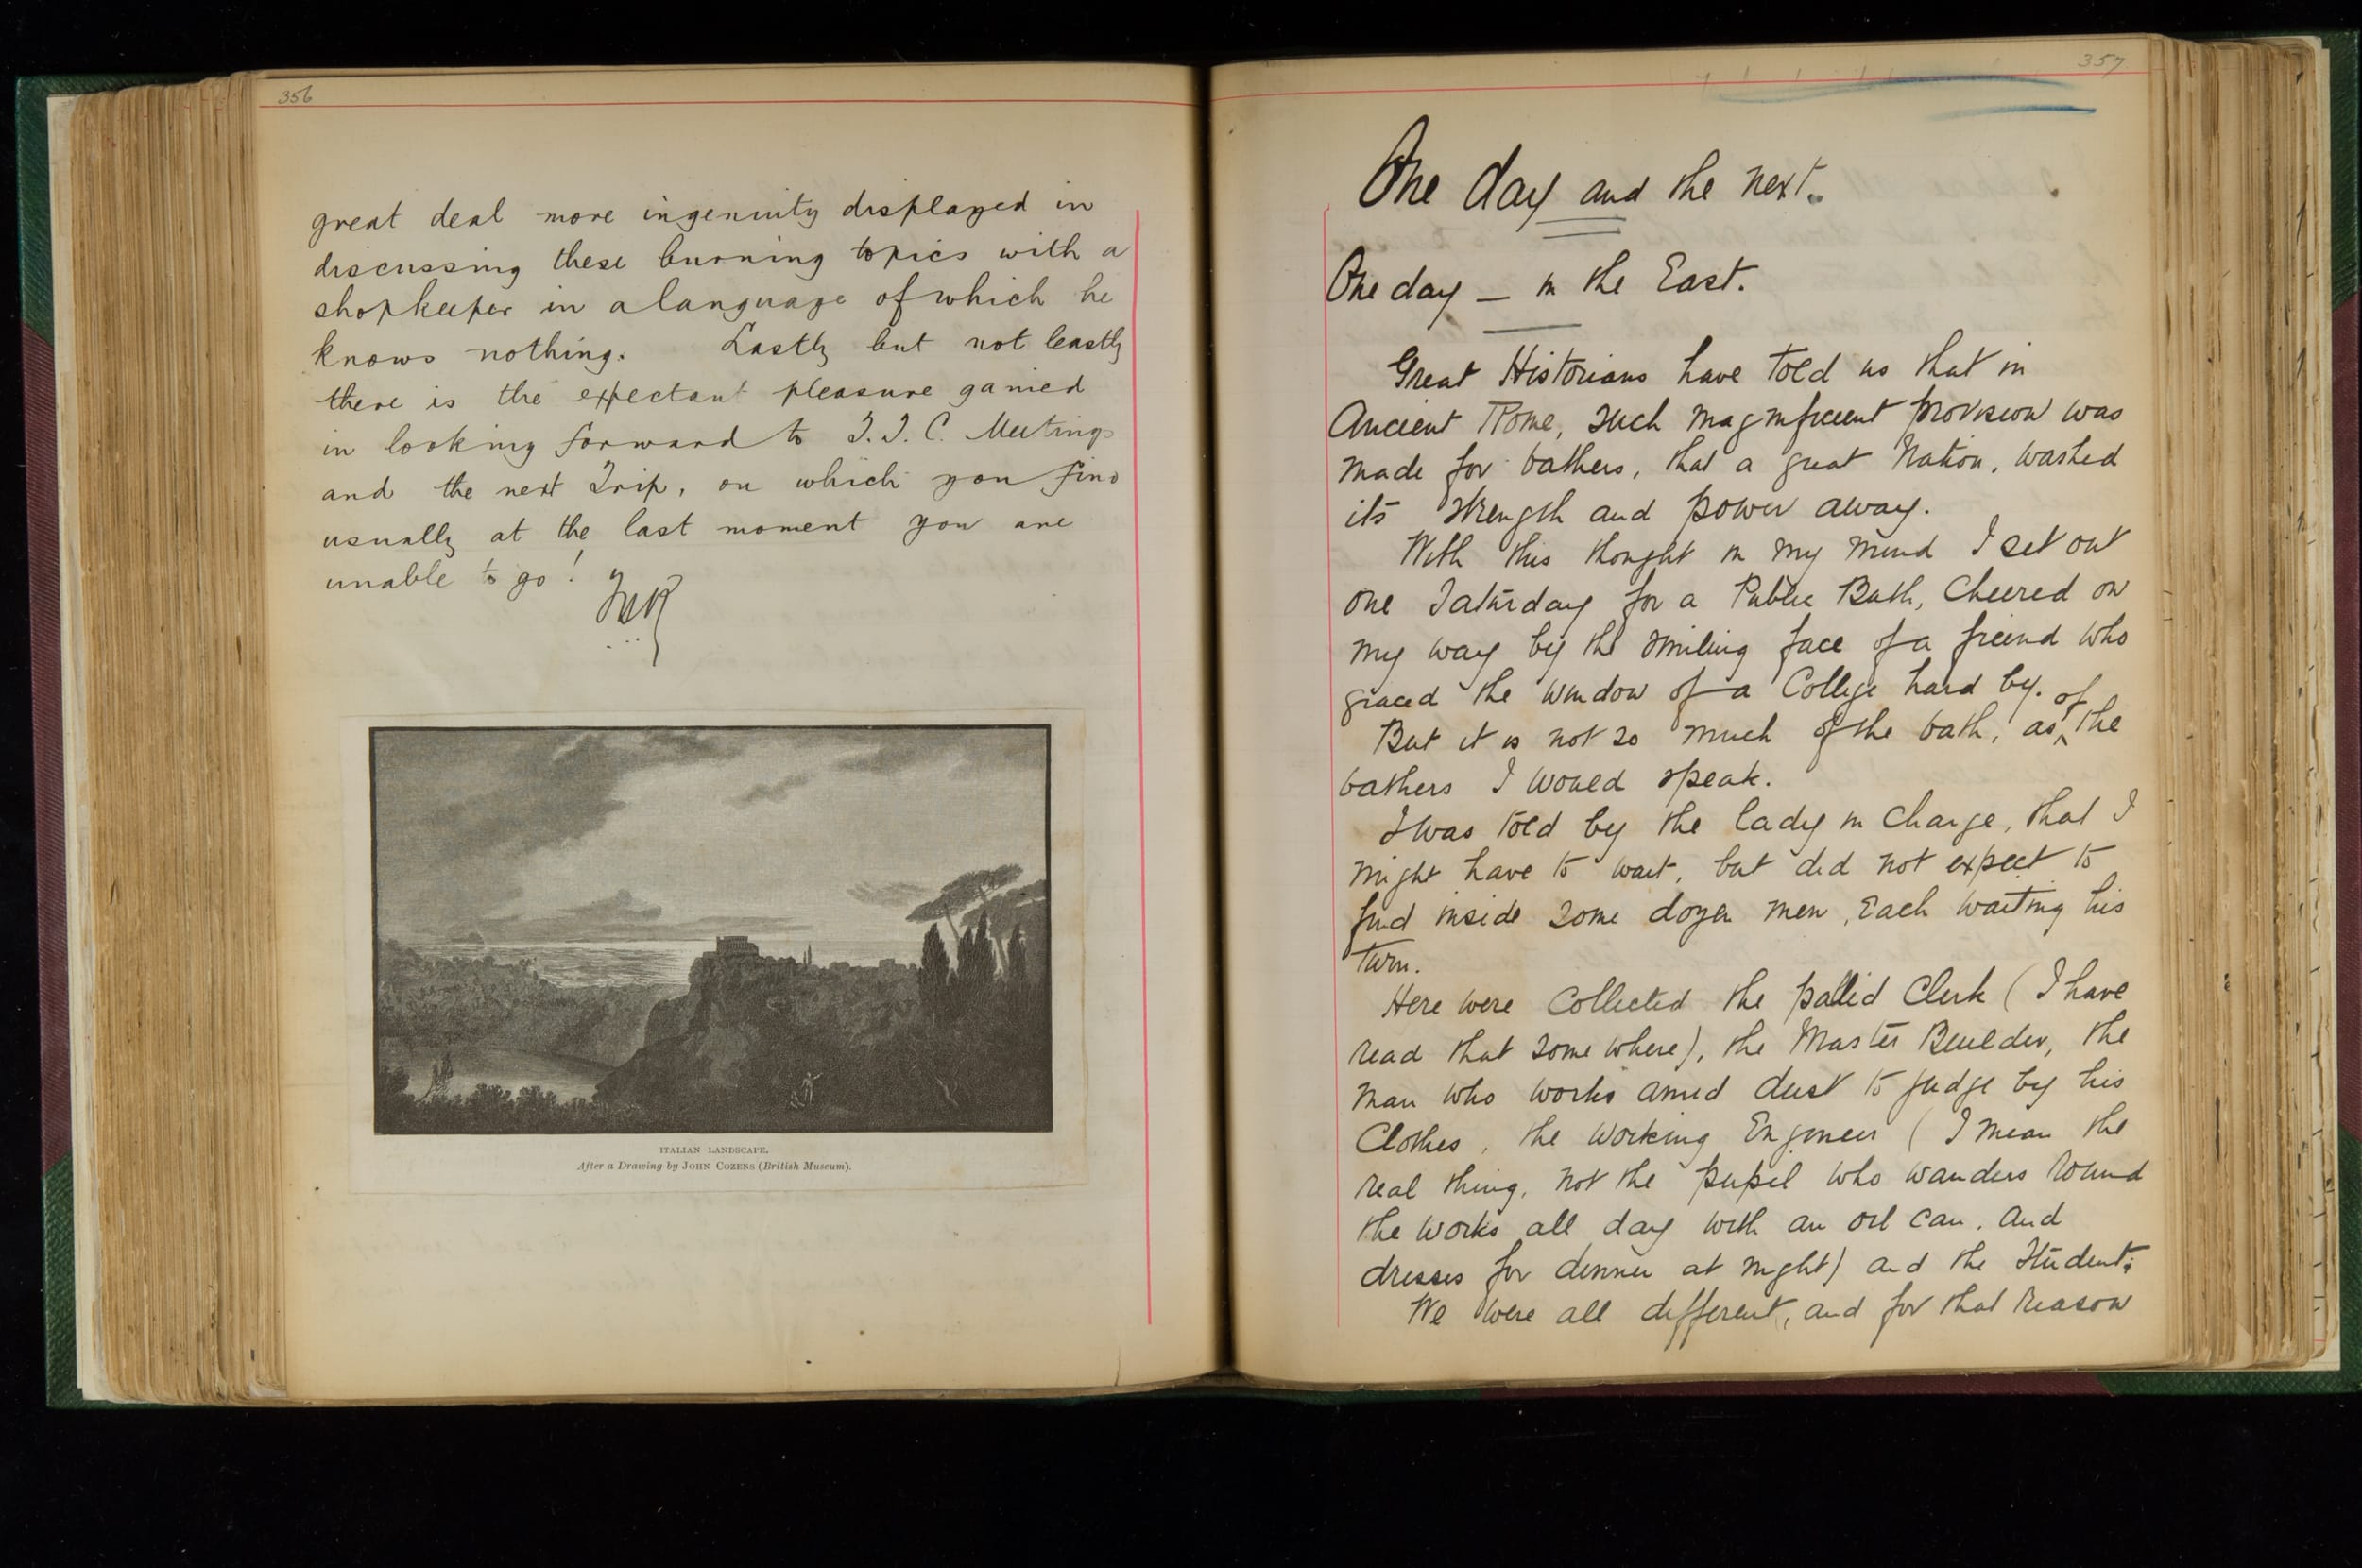 356
great deal more ingenuity displayed in
discussing these burning topics with a
shopkeeper in a language of which he
knows nothing. Lastly but not leastly
there is the expectant pleasure gained
in looking forward to T. T. C. Meetings
and the next Trip, on which you find
usually at the last moment you are
unable to go!
ITALIAN LANDSCAPE.
After a Drawing by JOHN COZENS (British Museum).
357
One day and the next.
One day — in the East.
Great Historians have told us that in
Ancient Rome, such magnificent provision was
made for bathers, that a great Nation, washed
its strength and power away.
With this thought in my mind I set out
one Saturday for a Public Bath, Cheered on
my way by the smiling face of a friend who
graced the window of a College hard by.
But it is not so much of the bath, as of the
bathers I would speak.
I was told by the lady in Charge, that I
might have to wait, but did not expect to
find inside some dozen men, Each waiting his
turn.
Here were Collected the pallid Clerk (I have
read that somewhere), the Master Builder, the
man who works amid dust to judge by his
Clothes, the Working Engineer (I mean the
real thing, not the pupil who wanders round
the works all day with an oil can, and
dresses for dinner at night) and the Student;
We were all different, and for that reason